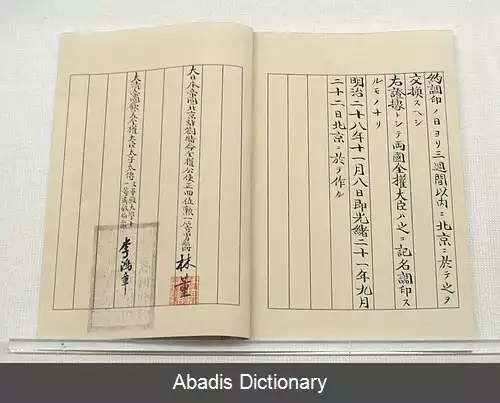 約調印ノ日ヨリ三週間以内ニ北京ニ於テ之ヲ
交換スヘシ
右證據トシテ両國全權大臣ハ之ニ記名調印ス
ルモノナリ
明治二十八年十一月八日即光緒二十一年九月
二十二日北京ニ於テ作ル
大日本帝國北京駐劄特命全權公使正四位勲一等男爵 林董
大清帝國欽差全權大臣太子太傅文華殿大學士
一等肅毅伯 李鴻章
Abadis Dictionary